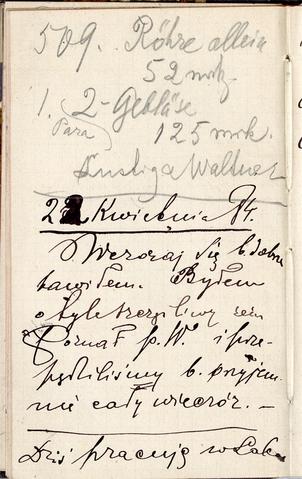 509. Röhre allein
52 mrk.
1. 2-Gebläse
Para
125 mrk.
Lustig a Waltner
22 Kwietnia 94.
Wczoraj się b. dobrze
bawiłem. Byłem
o tyle szczęśliwy żem
poznał p. W. i prze-
pędziliśmy b. przyjem-
nie cały wieczór. —
Dziś pracuję w Lab.